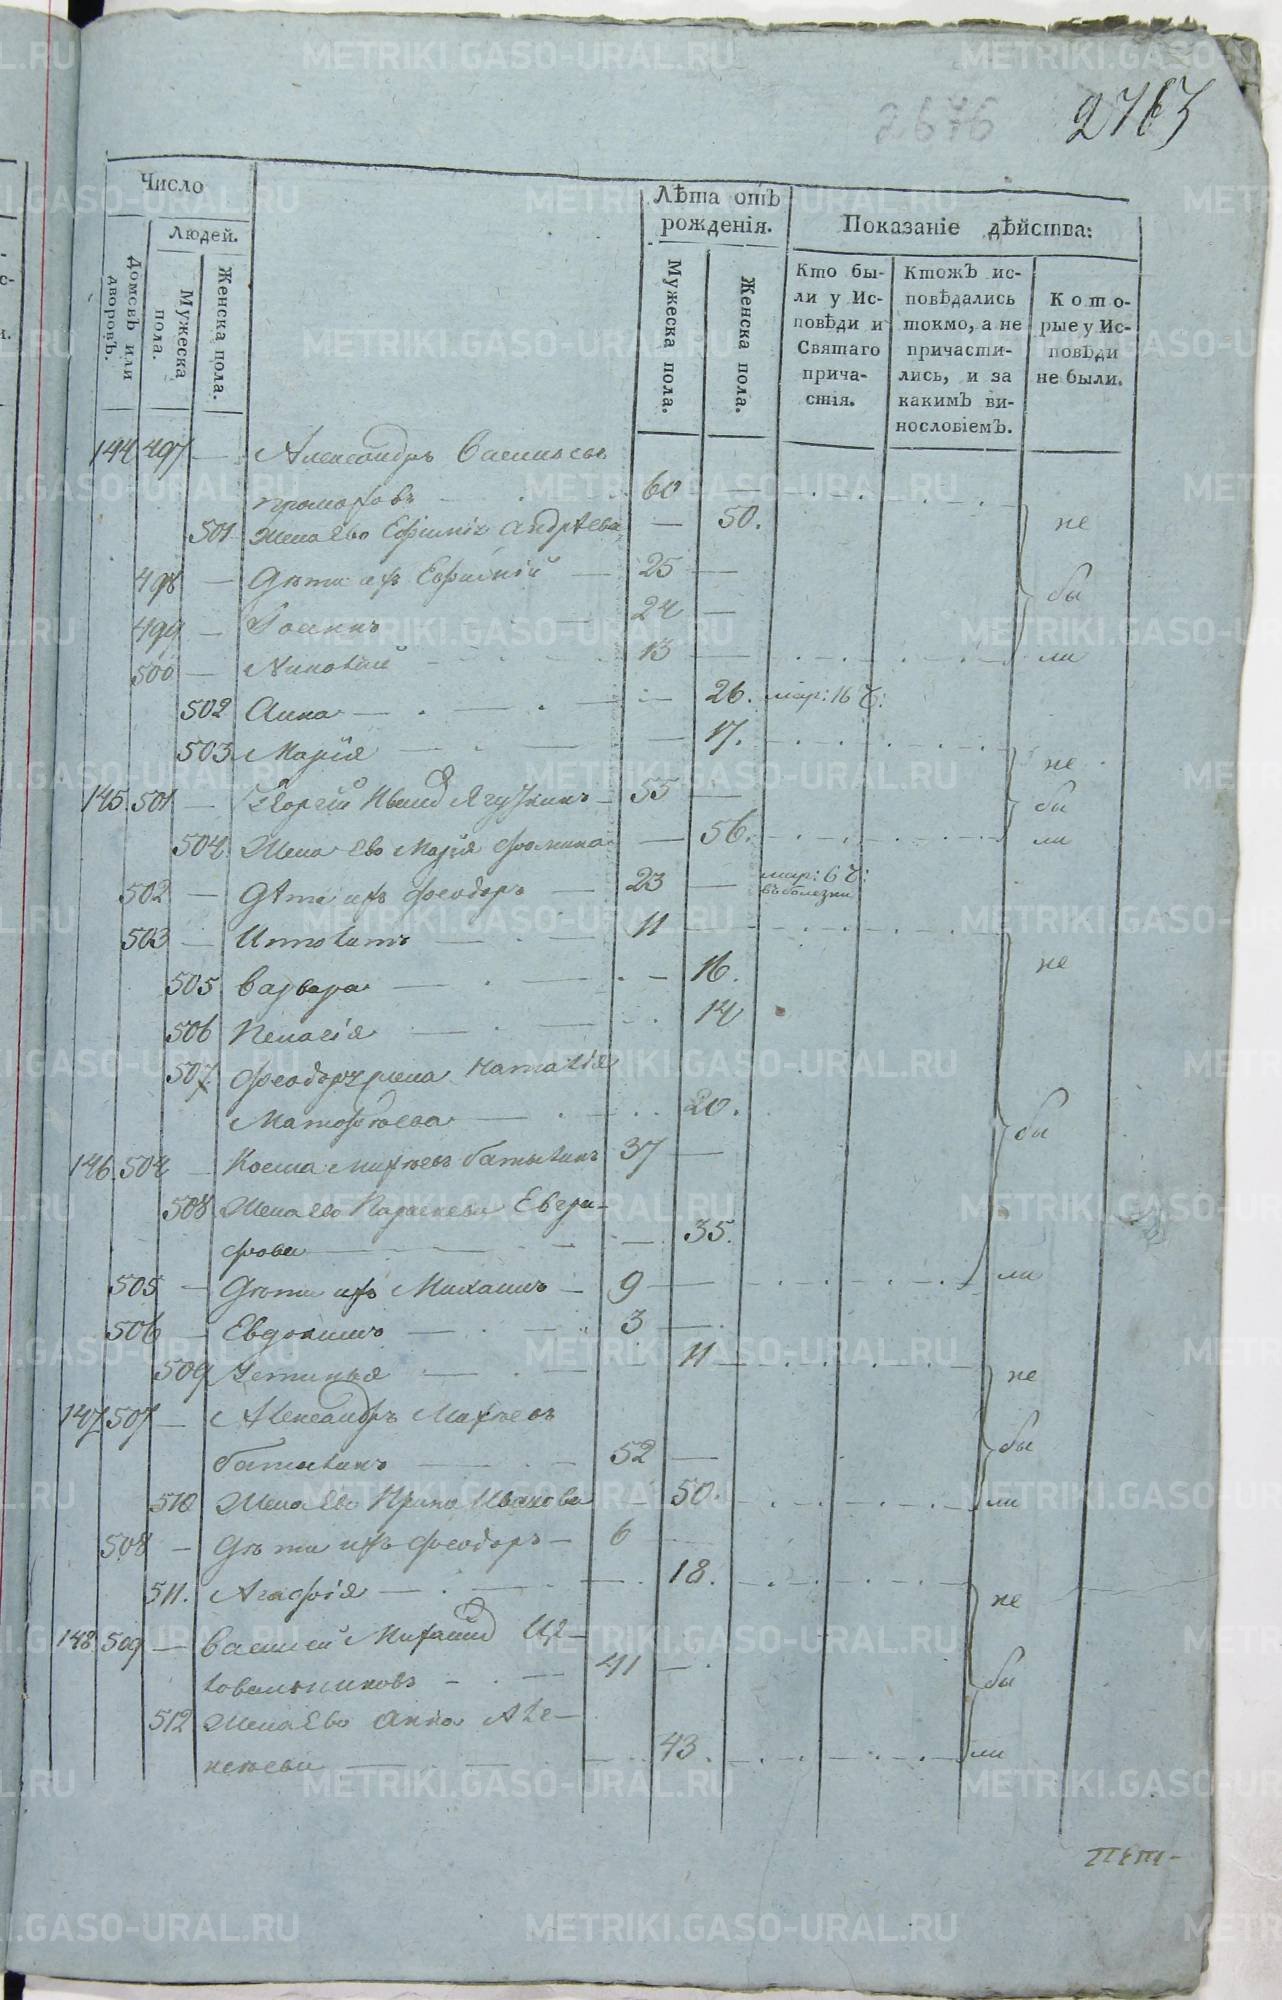 2676
Число
Людей.
Домовъ или дворовъ.
Мужеска пола.
Женска пола.
Лѣта отъ рожденія.
Мужеска пола.
Женска пола.
Показаніе дѣйства:
Кто бы-
ли у Ис-
повѣди и
Святаго
прича-
стія.
Ктожъ ис-
повѣдались
токмо, а не
причасти-
лись, и за
какимъ ви-
нословіемъ.
Кото-
рые у Ис-
повѣди
не были.
144 497 — Александръ Васильевъ
60 —
501 Жена Ево Ефимія Андрѣева — 50. не
498 — Дѣти ихъ Евфимій — 25 — бы
499 — Іоаннъ 24 —
500 — 13 — ли
502 Анна — 26. мар: 16 ч:
503 Марія — 17. не
145. 501 — Георгій Иванд 55 — бы
504 Жена Ево Марія Фомина — 56. ли
502 — Дѣти ихъ Феодоръ — 23 — мар: 6 ч:
въ болезни
503 — Ипполитъ 11
505 Варвара — 16. не
506 Пелагія — 14
507 Феодоръ жена Наталія
Матофѣева — 20. бы
146. 504 — Косма Михѣевъ Батыхинъ 37 —
508 Жена ево Параскева Евгра-
фова — 35.
505 — Дѣти ихъ Михаилъ — 9 — ли
506 — Евдокимъ — 3 —
509 Устинья — 11 не
147. 507 — Александръ Михѣевъ
Батыхинъ — 52 — бы
510 Жена Ево Ирина Иванова 50. ли
508 — Дѣти ихъ Феодоръ — 6
511. Агафія — 18. не
148 509 — Василій Михайлд
41 — бы
512 Жена Ево Анна Але-
ксѣева — 43. ли
METRIKI.GASO-URAL.RU